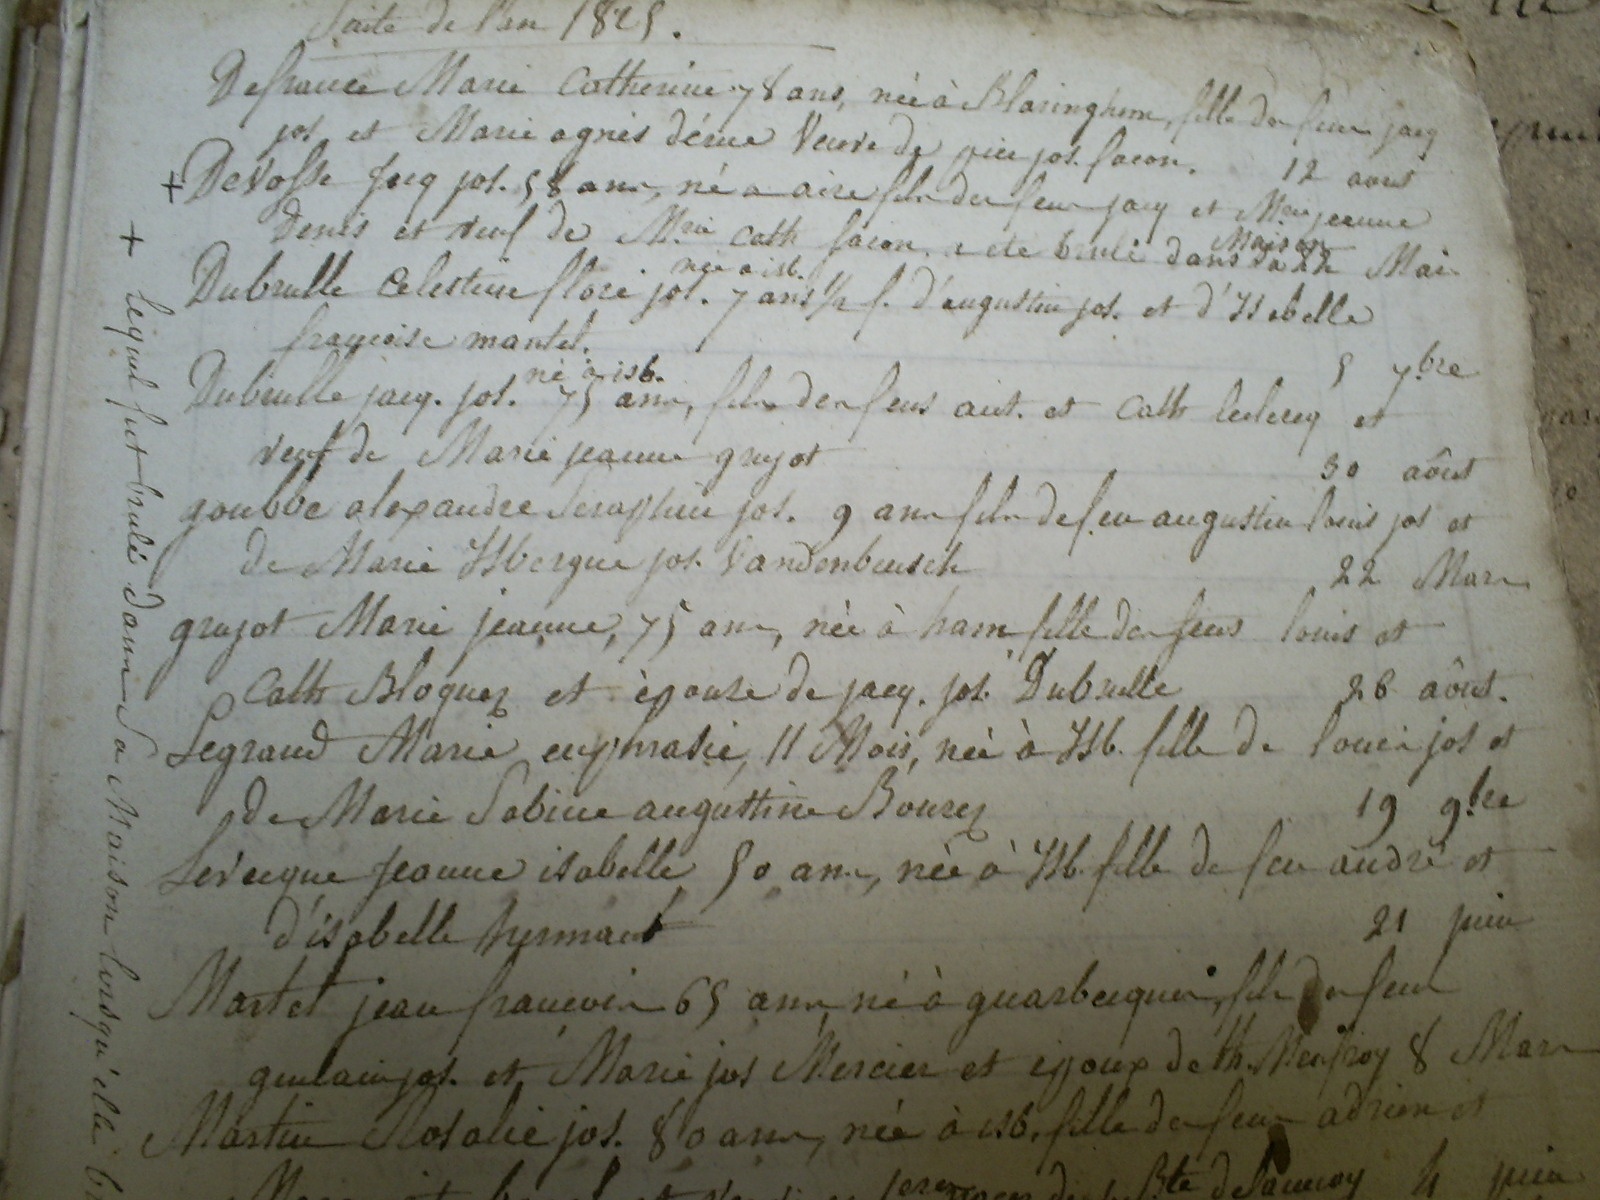 Suite de l'an 1825.
Defrance Marie Catherine 78 ans, née à Blaringhem, fille des feus jacq
jos. et Marie agnès veuve de jos. facon. 12 aout
+ Devosse Jacq jos. 58 ans, né a aire fils des feus jacq et Mrie jeanne
Denis et veuf de Mrie Cath facon. a été brulé dans sa Maison 22 Mai
Dubrulle Celestine flore jos. née a isb. 7 ans 1/2 f. d'augustin jos. et d'Isabelle
françoise mantel. 5 7.bre
Dubrulle jacq. jos. né à isb. 75 ans, fils des feus ant. et Cath leclercq et
veuf de Marie jeanne grujot 30 aôut
goubbe alexandre Seraphin jos. 9 ans fils de feu augustin louis jos et
de Marie Isbergue jos. Vandenbeusch 22 Mars
grujot Marie jeanne, 75 ans, née à ham fille des feus louis et
Cath Bloquez et épouse de jacq. jos. Dubrulle 26 aôut.
Legrand Marie euphrasie, 11 Mois, née à Isb. fille de louis jos et
de Marie Sabine augustine Bourez 19 9.bre
Levecque Jeanne isabelle 50 ans, née à Isb. fille de feu andré et
d'isabelle hermant 21 juin
Martel jean francois 65 ans né à guarbecques, fils des feus
guilain jos. et Marie jos Mercier et époux de th. Menfroy 8 Mars
Martin Rosalie jos. 80 ans, née à isb. fille des feus adrien et
Marie et de Bte delannoy 4 juin
+ lequel fut brulé dans sa Maison lorsqu'elle